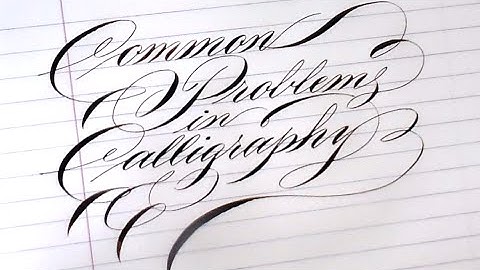 Common
Problems
in
Calligraphy